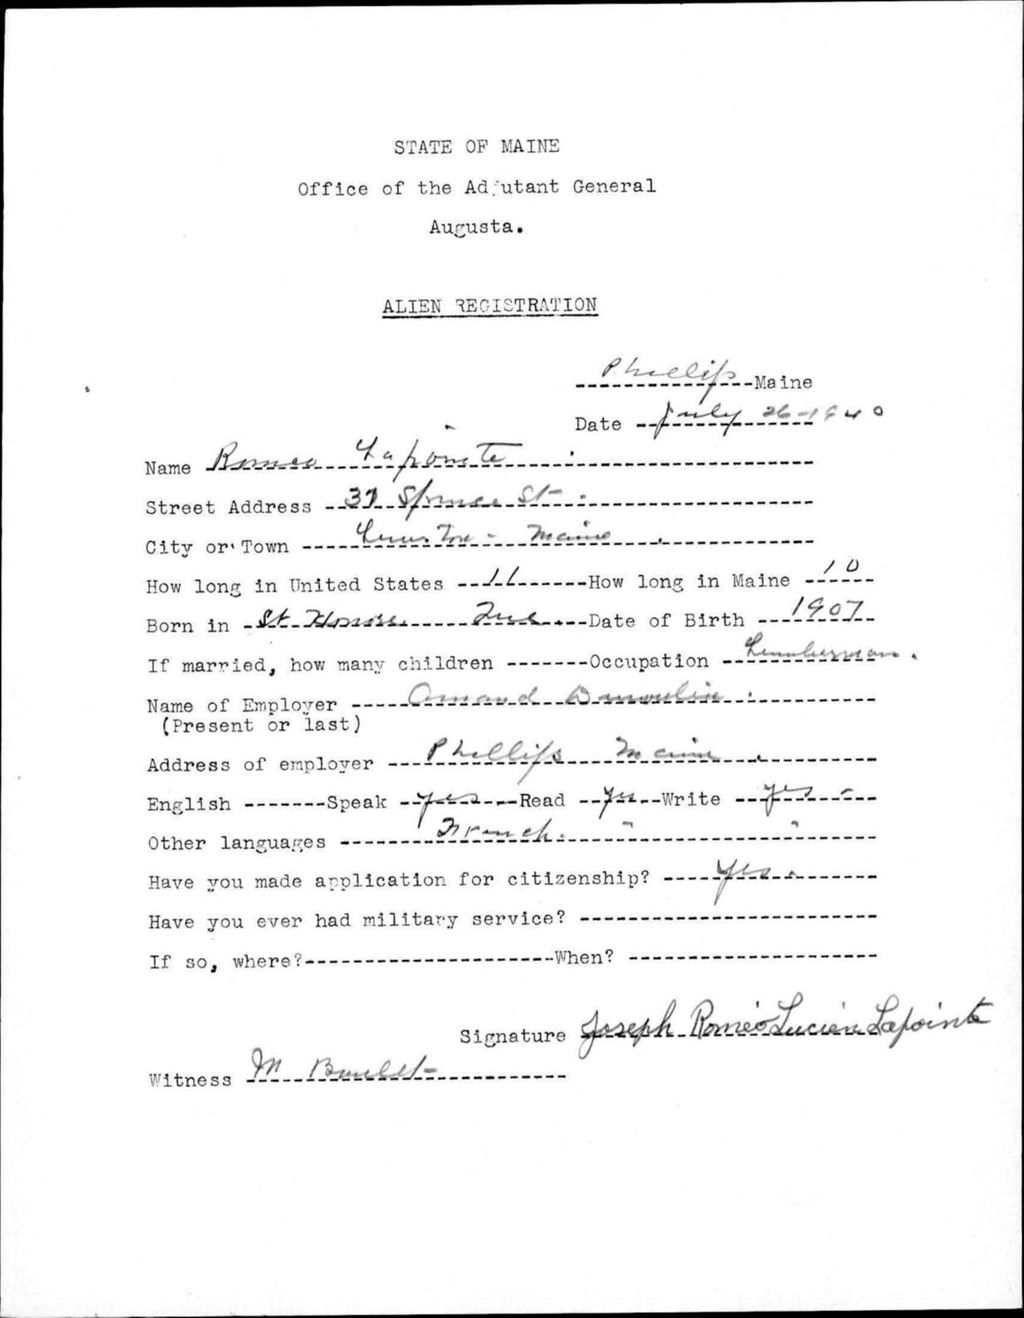 STATE OF MAINE
Office of the Adjutant General
Augusta.
ALIEN REGISTRATION
Phillips Maine
Date July 26-1940
Name Romeo Lapointe
Street Address 37 Spruce St
City or Town Lewiston - Maine
How long in United States 11 How long in Maine 10
Born in St Honore Que Date of Birth 1907
If married, how many children Occupation Lumberman.
Name of Employer Armand Dumoulin
(Present or last)
Address of employer Phillips Maine
English Speak yes Read yes Write yes
Other languages French. " "
Have you made application for citizenship? Yes.
Have you ever had military service?
If so, where? When?
Signature Joseph Roméo Lucien Lapointe
Witness M Boulet